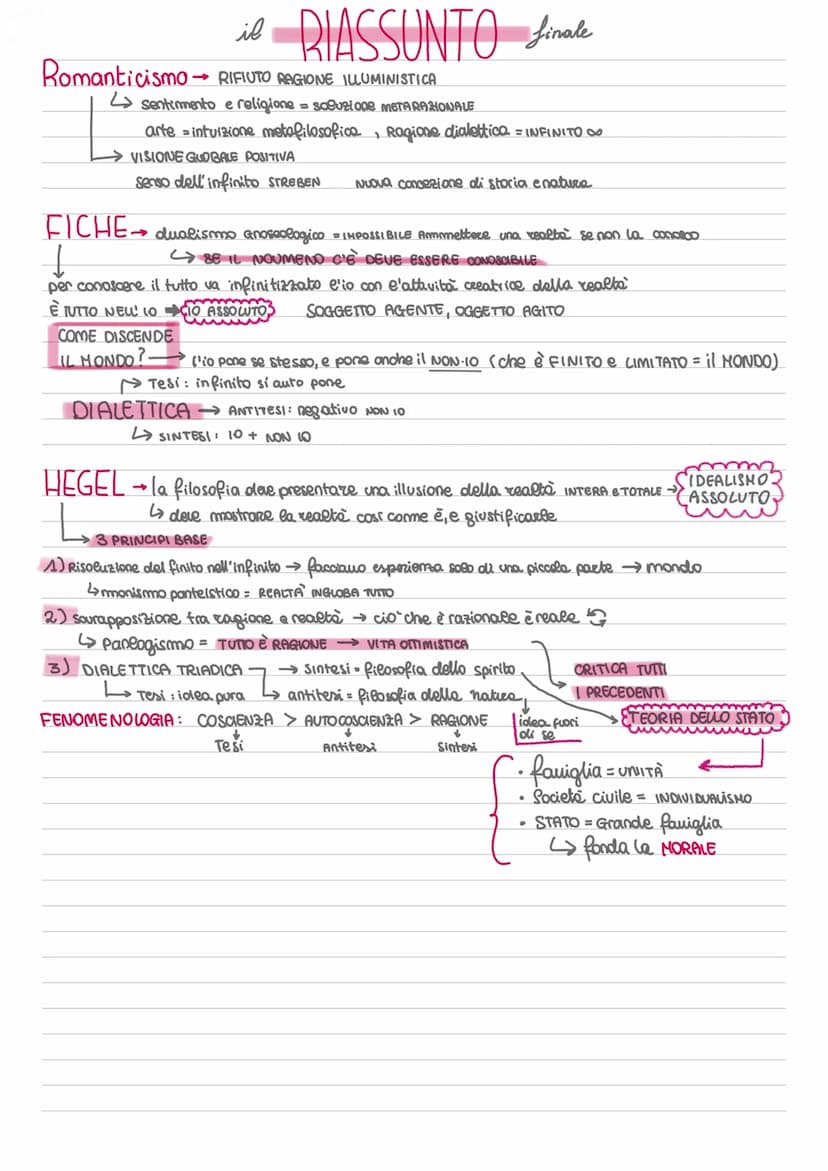 il RIASSUNTO finale
Romanticismo → RIFIUTO RAGIONE ILLUMINISTICA
↳ sentimento e religione = soluzione METARAZIONALE
arte = intuizione metafilosofica, Ragione dialettica = INFINITO ∞
→ VISIONE GLOBALE POSITIVA
senso dell'infinito STREBEN NUOVA concezione di storia e natura
FICHE → dualismo gnoseologico = IMPOSSIBILE Ammmettere una realtà se non la conosco
↳ SE IL NOUMENO C'È DEVE ESSERE CONOSCIBILE
per conoscere il tutto va infinitizzato l'io con l'attività creatrice della realtà
È TUTTO NELL' IO → IO ASSOLUTO SOGGETTO AGENTE, OGGETTO AGITO
COME DISCENDE
IL MONDO? → l'io pone se stesso, e pone anche il NON-IO (che è FINITO e LIMITATO = il MONDO)
→ Tesi: infinito si auto pone
DIALETTICA → ANTITESI: negativo NON IO
↳ SINTESI: IO + NON IO
HEGEL → la filosofia deve presentare una illusione della realtà INTERA e TOTALE → IDEALISMO ASSOLUTO
↳ deve mostrare la realtà così come è, e giustificarle
→ 3 PRINCIPI BASE
1) Risoluzione del finito nell'infinito → facciamo esperienza solo di una piccola parte → mondo
↳ monismo panteistico = REALTÀ INGLOBA TUTTO
2) sovrapposizione tra ragione e realtà → ciò che è razionale è reale
↳ Panlogismo = TUTTO È RAGIONE → VITA OTTIMISTICA
3) DIALETTICA TRIADICA → sintesi = filosofia dello spirito CRITICA TUTTI
↳ Tesi: idea pura ↳ antitesi = filosofia della natura I PRECEDENTI
FENOMENOLOGIA: COSCIENZA > AUTOCOSCIENZA > RAGIONE idea fuori di se TEORIA DELLO STATO
Tesi Antitesi Sintesi
• famiglia = UNITÀ
• Società civile = INDIVIDUALISMO
• STATO = Grande famiglia
↳ fonda la MORALE